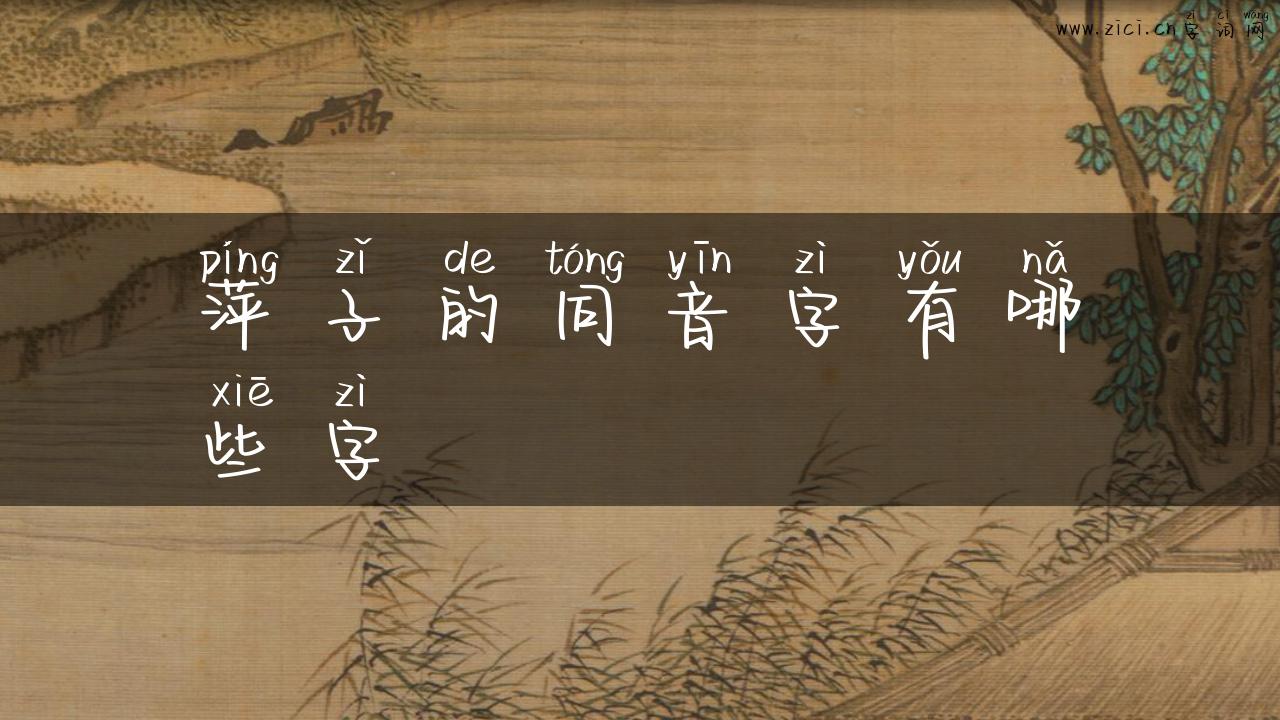 zì cí wǎng
www.zici.cn字词网
píng zǐ de tóng yīn zì yǒu nǎ
萍子的同音字有哪
xiē zì
些字